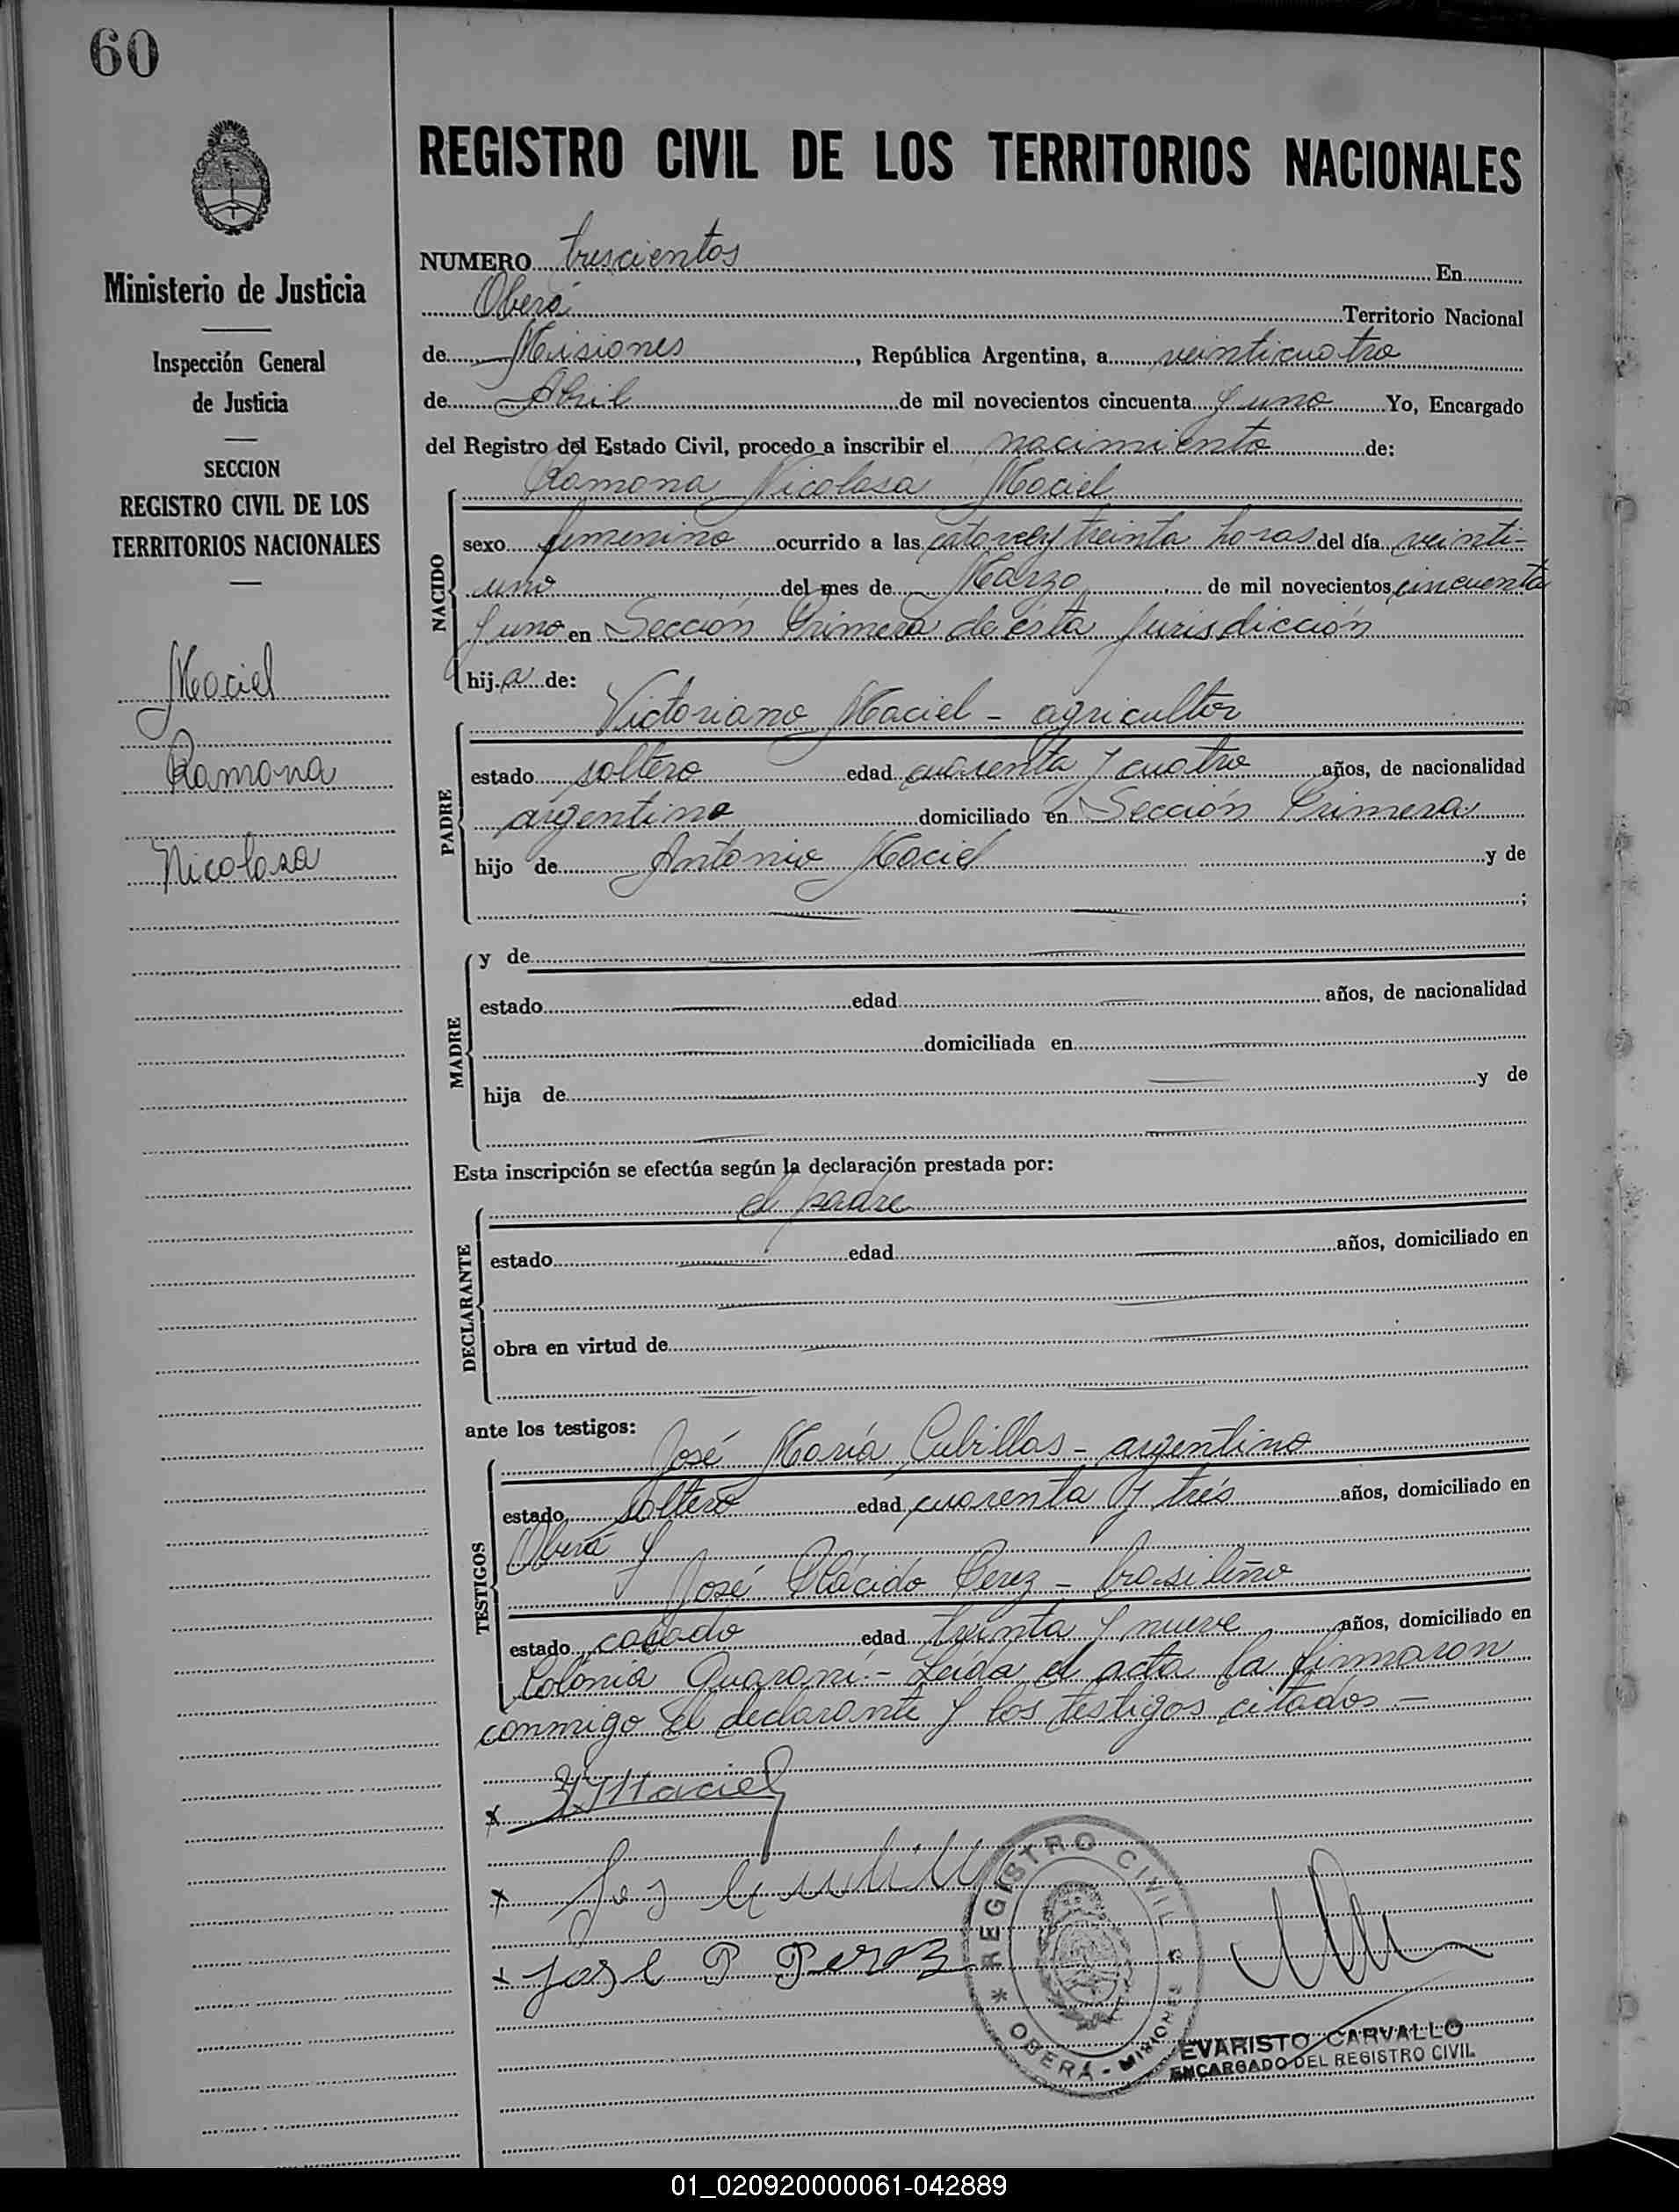 60
Ministerio de Justicia
Inspección General
de Justicia
SECCION
REGISTRO CIVIL DE LOS
TERRITORIOS NACIONALES
Maciel
Ramona
Nicolasa
REGISTRO CIVIL DE LOS TERRITORIOS NACIONALES
NUMERO trescientos En
Oberá Territorio Nacional
de Misiones, República Argentina, a veinticuatro
de Abril de mil novecientos cincuenta y uno Yo, Encargado
del Registro del Estado Civil, procedo a inscribir el nacimiento de:
Ramona Nicolasa Maciel
NACIDO
sexo femenino ocurrido a las catorce y treinta horas del día veinti-
uno del mes de Marzo de mil novecientos cincuenta
y uno en Sección Primera de ésta jurisdicción
hija de:
Victoriano Maciel - agricultor
PADRE
estado soltero edad cuarenta y cuatro años, de nacionalidad
argentino domiciliado en Sección Primera
hijo de Antonio Maciel y de
;
MADRE
y de
estado edad años, de nacionalidad
domiciliada en
hija de y de
Esta inscripción se efectúa según la declaración prestada por:
el padre
DECLARANTE
estado edad años, domiciliado en
obra en virtud de
ante los testigos:
José María Cubillas - argentino
TESTIGOS
estado soltero edad cuarenta y trés años, domiciliado en
Oberá y
José Plácido Perez - brasileño
estado casado edad treinta y nueve años, domiciliado en
Colonia Guaraní.- Leída el acta la firmaron
conmigo el declarante y los testigos citados.-
x Maciel
x
x Jose P Perez
REGISTRO CIVIL
* OBERÁ - MISIONES *
EVARISTO CARVALLO
ENCARGADO DEL REGISTRO CIVIL
01_020920000061-042889